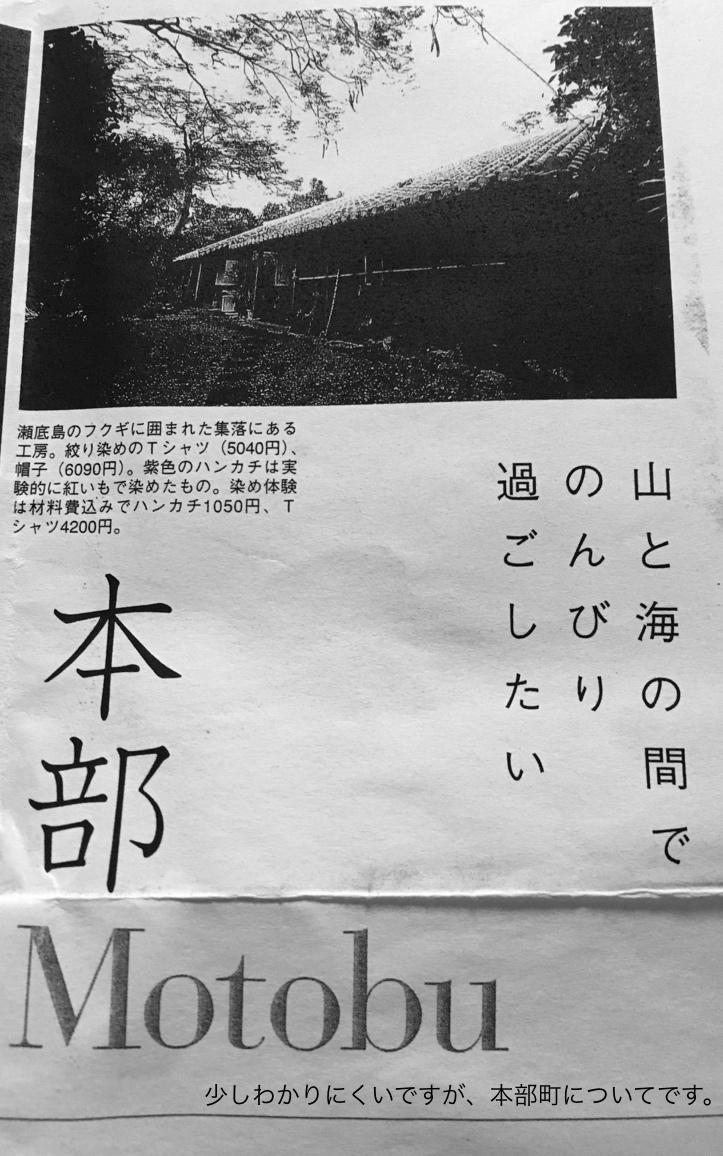 瀬底島のフクギに囲まれた集落にある
工房。絞り染めのTシャツ（5040円）、
帽子（6090円）。紫色のハンカチは実
験的に紅いもで染めたもの。染め体験
は材料費込みでハンカチ1050円、T
シャツ4200円。
山と海の間で
のんびり
過ごしたい
本部
Motobu
少しわかりにくいですが、本部町についてです。